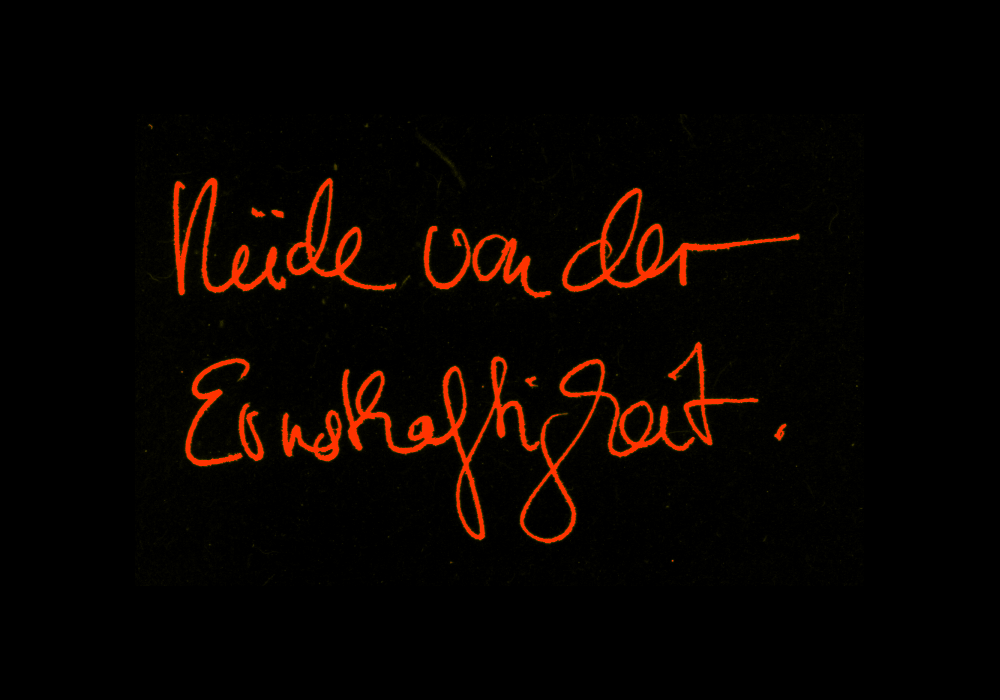 Müde von der
Ernsthaftigkeit.